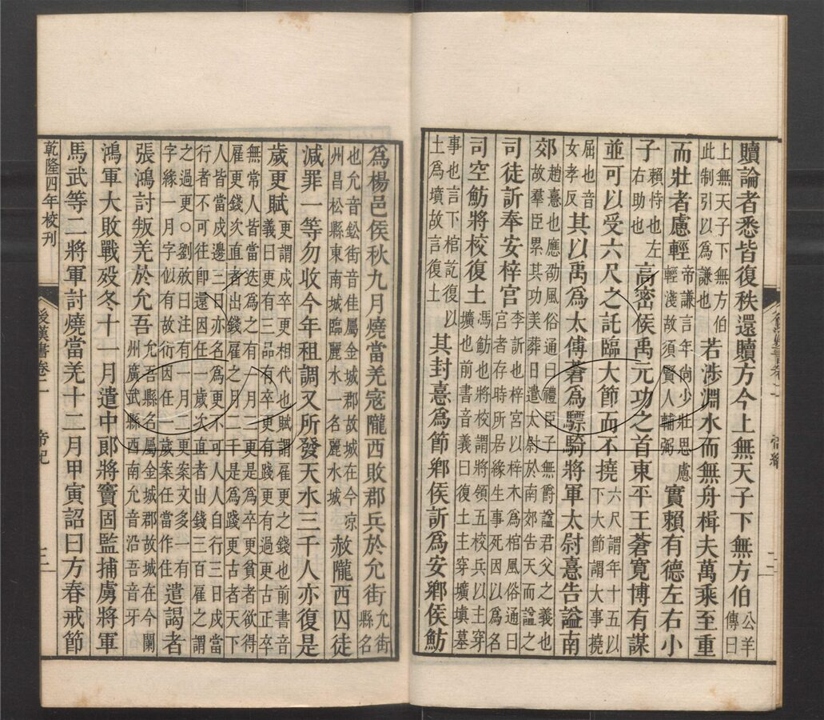 贖論者悉皆復秩還贖方今上無天子下無方伯公羊傳曰
上無天子下無方伯此制引以為謙也若涉淵水而無舟楫夫萬乘至重
而壯者慮輕帝謙言年尚少壯思慮輕淺故須賢人輔弼實賴有德左右小
子賴恃也左右助也高密侯禹元功之首東平王蒼寬博有謀
並可以受六尺之託臨大節而不撓六尺謂年十五以下大節謂大事撓
屈也音女孝反其以禹為太傅蒼為驃騎將軍太尉憙告謚南
郊趙憙也應劭風俗通曰禮臣子無爵謚君父之義也故羣臣累其功美葬日遣太尉於南郊告天而謚之
司徒訢奉安梓宮李訢也梓宮以梓木為棺風俗通曰宮者存時所居緣生事死因以為名
司空魴將校復土馮魴也將校謂將領五校兵以主穿壙也前書音義曰復土主穿壙塡墓
事也言下棺訖復以土為墳故言復土其封憙為節鄉侯訢為安鄉侯魴
為楊邑侯秋九月燒當羌寇隴西敗郡兵於允街允街縣名
也允音鈆街音佳屬金城郡故城在今凉州昌松縣東南城臨麗水一名麗水城赦隴西囚徒
減罪一等勿收今年租調又所發天水三千人亦復是
歲更賦更謂戍卒更相代也賦謂雇更之錢也前書音義曰更有三品有卒更有踐更有過更古正卒
無常人皆當迭為之有一月一更是為卒更貧者欲得雇更錢次直者出錢雇之月二千是為踐更古者天下
人皆當戍邊三日亦名為更不可人人自行三日戍當行者不可往即還因任一歲次直者出錢三百雇之謂
之過更○劉攽曰注有一月二更案文多一有字緣一月字似有故衍因任一歲案任當作住遣謁者
張鴻討叛羌於允吾允吾縣名屬金城郡故城在今蘭州廣武縣西南允音沿吾音牙
鴻軍大敗戰歿冬十一月遣中郎將竇固監捕虜將軍
馬武等二將軍討燒當羌十二月甲寅詔曰方春戒節
乾隆四年校刊
後漢書卷二
帝紀
三